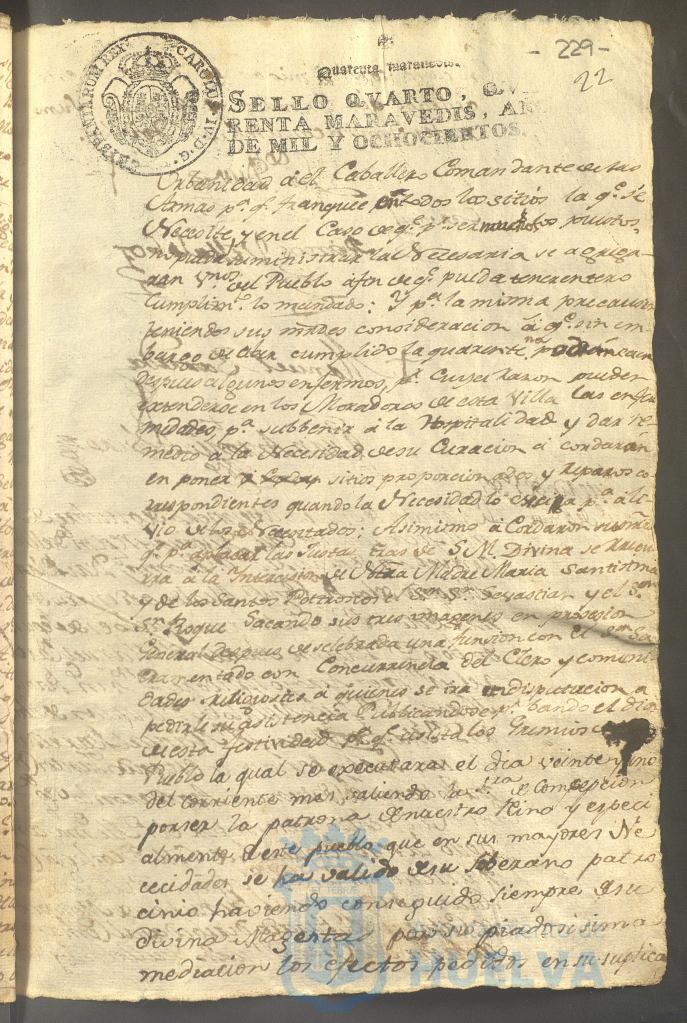 - 229 -
22
Quarenta maravedis.
CAROLUS IV D. G. HISPANIARUM REX
SELLO QVARTO, QVA
RENTA MARAVEDIS, AÑO
DE MIL Y OCHOCIENTOS.
Urbanidad á el Caballero Comandante de las
Armas pª. qᵉ. franquee en todos los sitios la qᵉ. se
Necesite, y en el Caso de qᵉ. pʳ. ser muchos los puestos
no pueda suministrar la Necesaria se agrega-
ran vnoˢ. del Pueblo afin de qᵉ. pueda tener entero
Cumplimᵗᵒ. lo mandado: Y pª. la misma precaucion
teniendo sus mrdes consideracion á qᵉ. sin em
bargo de dar cumplido la quarentⁿᵃ. podrán caer
despues algunos enfermos, pʳ. cuya Razon pueden
extenderse en los Moradores de esta Villa las enfer
medades pª. subbenir á la Hospitalidad y dar re
medio á la Necesidad, de su Curacion acordaron
en poner sitios proporcionados y reparos co
rrespondientes quando la Necesidad lo exija pª. ali
vio de los Necesitados: Asimismo acordaron
qᵉ. pª. aplacar las Justas Iras de S. M. Divina se recu
rra á la Intercesion de Ntra Madre Maria Santisima
y de los Santos Patronos Sⁿ. Sevastian y el Sʳ.
Sⁿ. Roque Sacando sus tres imagenes en prosesion
General despues de selebrada una funsion con el Sᵒʳ Sa
cramentado con Concurrencia del Clero y comuni
dades religiosas á quienes se ira en diputacion a
pedirle su asistencia Publicandose pʳ. bando el dia
de esta festividad pª. qᵉ. asista los Gremios
Pueblo la qual se executara el dia veinte y uno
del corriente mes, saliendo la de Consepcion
por ser la patrona de nuestro Reino y especi
almente de este pueblo que en sus mayores Ne
cecidades se ha valido de su soberano patro
cinio haviendo conseguido siempre de su
divina Magestad por su piadosisima
mediacion los efectos pedidos en su suplica
HUELVA